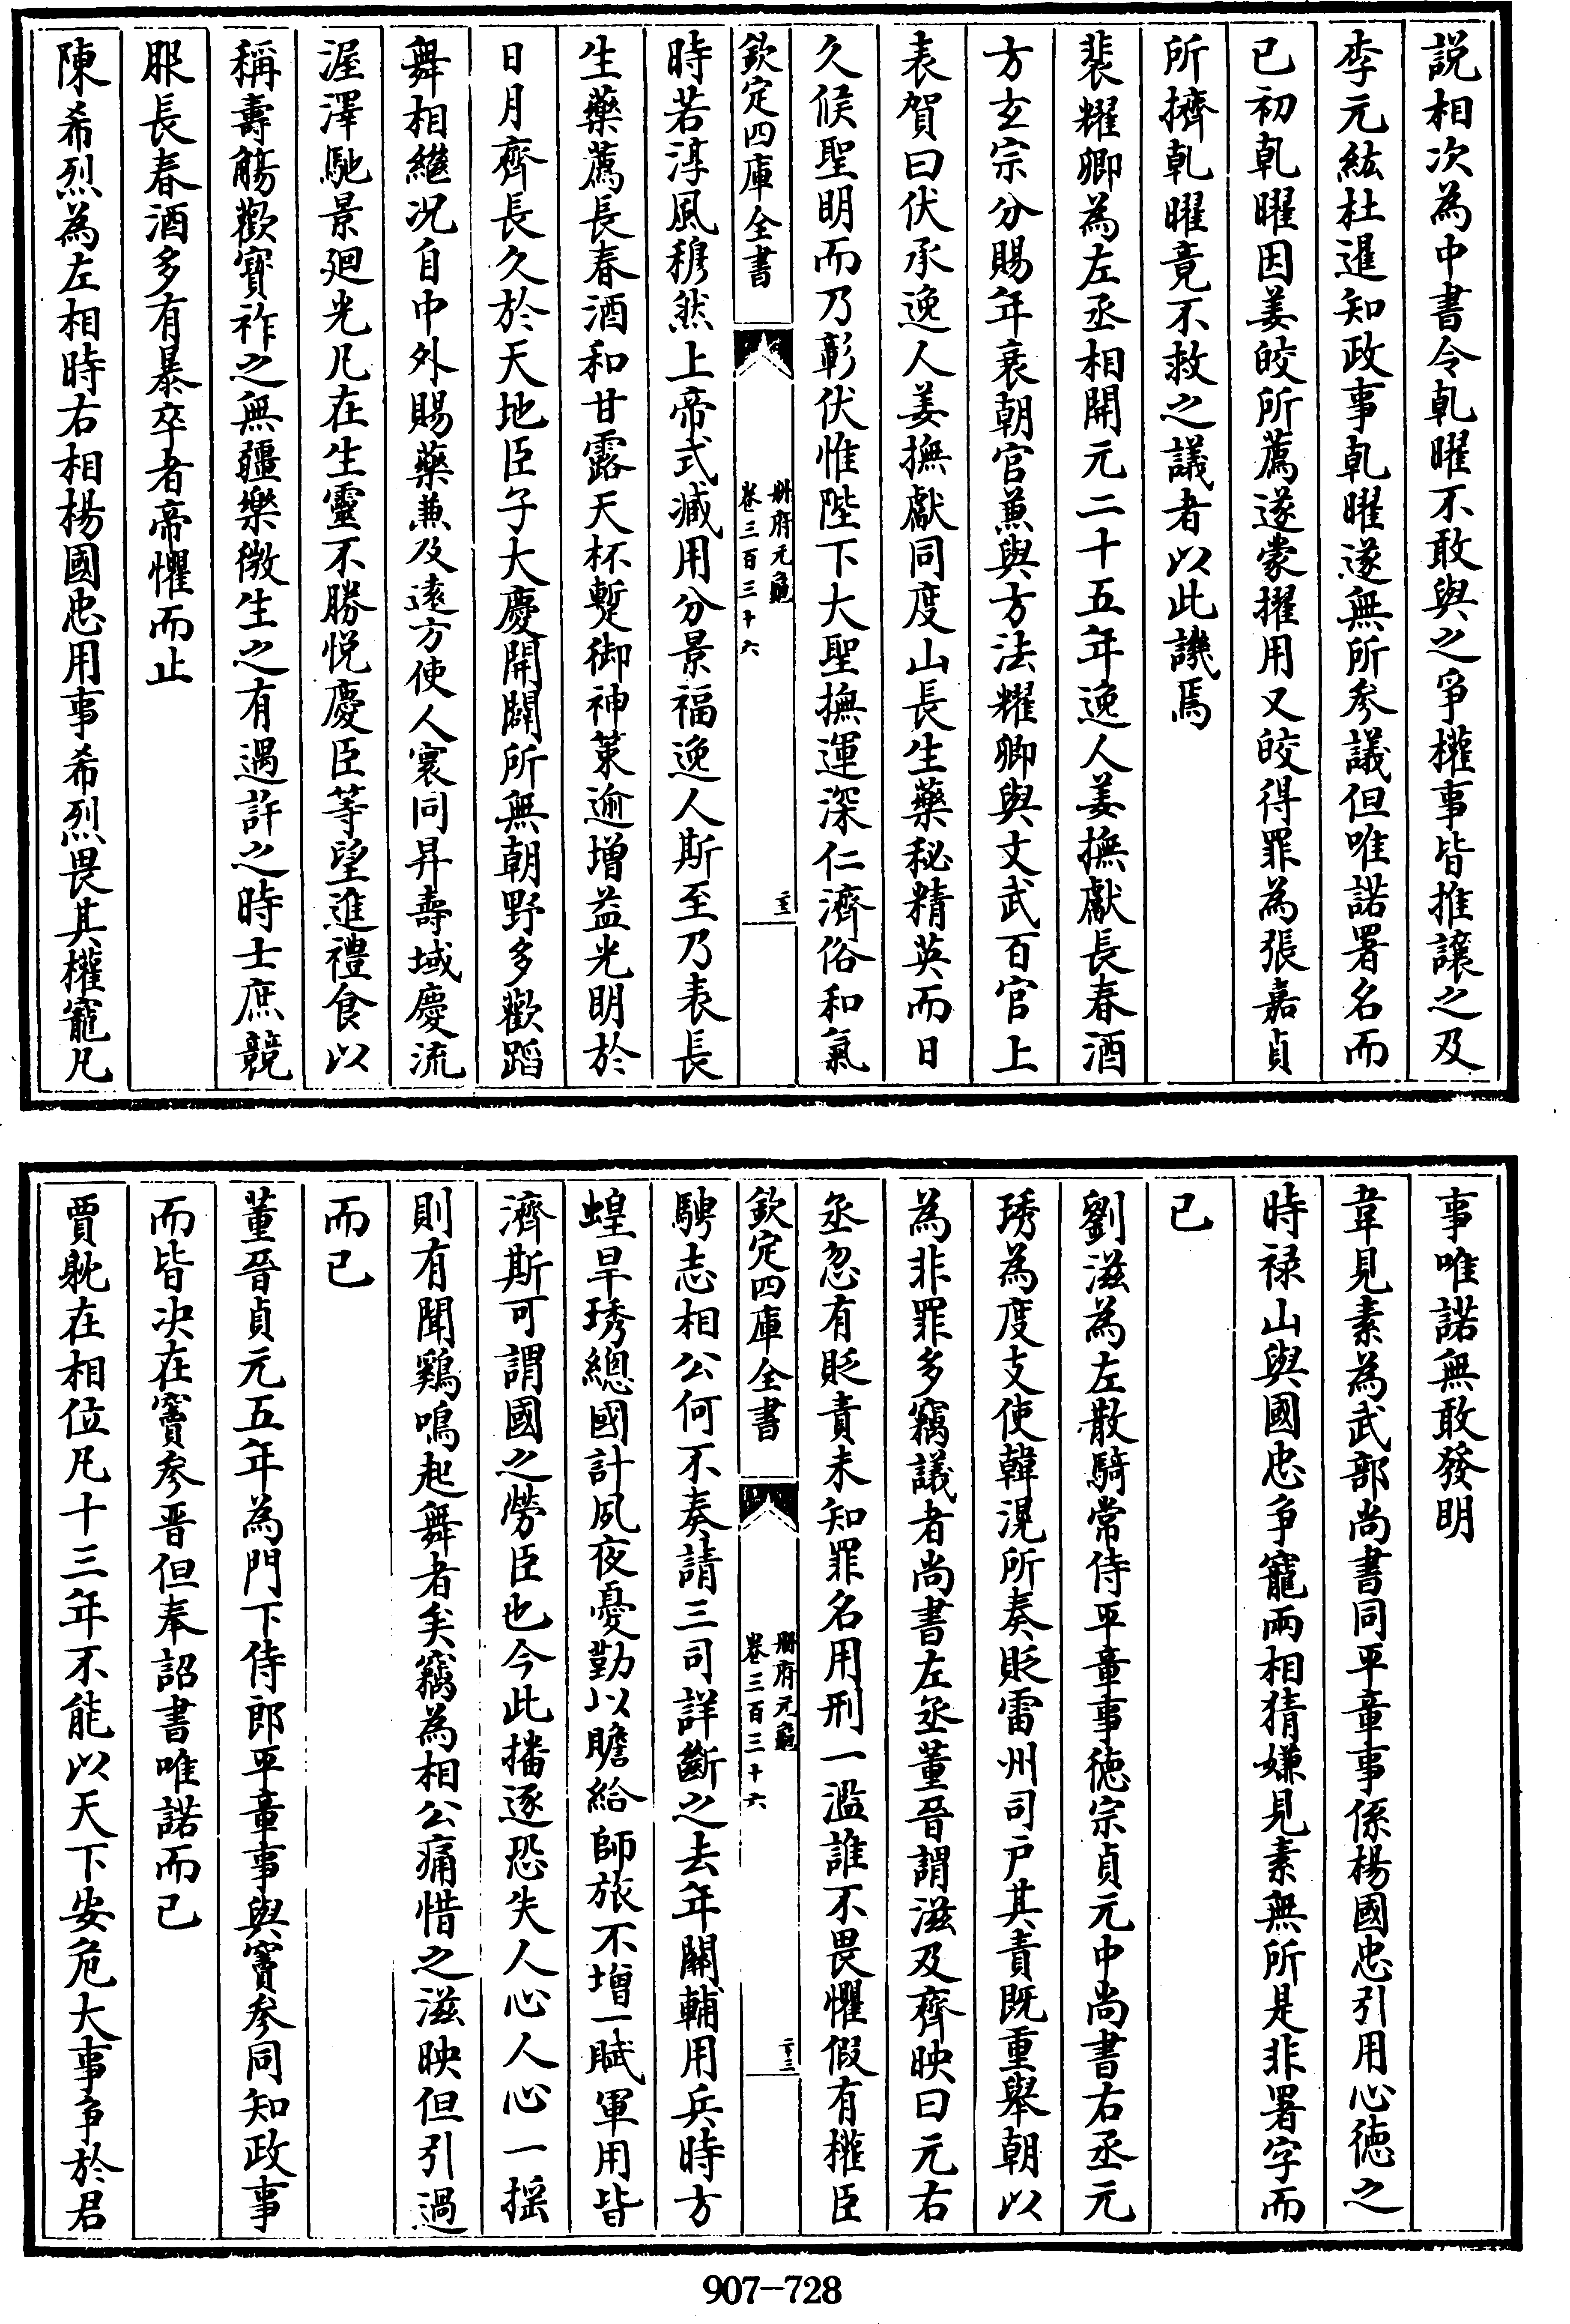 説相次為中書令乹曜不敢與之爭權事皆推讓之及
李元紘杜暹知政事乹曜遂無所参議但唯諾署名而
已初乹曜因姜皎所薦遂蒙擢用又皎得罪為張嘉貞
所擠乹曜竟不救之議者以此譏焉
裴耀卿為左丞相開元二十五年逸人姜撫獻長春酒
方𤣥宗分賜年衰朝官兼與方法耀卿與文武百官上
表賀曰伏承逸人姜撫獻同度山長生藥秘精英而日
久俟聖明而乃彰伏惟陛下大聖撫運深仁濟俗和氣
欽定四庫全書
冊府元龜
卷三百三十六
二十二
時若淳風穆然上帝式減用分景福逸人斯至乃表長
生藥薦長春酒和甘露天杯蹔御神筞逾增益光明於
日月齊長久於天地臣子大慶開闢所無朝野多歡蹈
舞相繼况自中外賜藥兼及逺方使人寰同昇壽域慶流
渥澤馳景廻光凡在生靈不勝悦慶臣等望進禮食以
稱壽觴歡寶祚之無疆樂微生之有遇許之時士庶競
服長春酒多有暴卒者帝懼而止
陳希烈為左相時右相楊國忠用事希烈畏其權寵凡
事唯諾無敢發明
韋見素為武部尚書同平章事係楊國忠引用心徳之
時禄山與國忠争寵兩相猜嫌見素無所是非署字而
已
劉滋為左散騎常侍平章事徳宗貞元中尚書右丞元
琇為度支使韓滉所奏貶雷州司户其責既重舉朝以
為非罪多竊議者尚書左丞董晉謂滋及齊映曰元右
丞忽有貶責未知罪名用刑一濫誰不畏懼假有權臣
欽定四庫全書
冊府元龜
卷三百三十六
二十三
騁志相公何不奏請三司詳斷之去年關輔用兵時方
蝗旱琇總國計夙夜憂勤以贍給師旅不增一賦軍用皆
濟斯可謂國之勞臣也今此播逐恐失人心人心一揺
則有聞鷄鳴起舞者矣竊為相公痛惜之滋映但引過
而已
董晉貞元五年為門下侍郎平章事與竇参同知政事
而皆决在竇参晉但奉詔書唯諾而已
賈躭在相位凡十三年不能以天下安危大事争於君
907-728